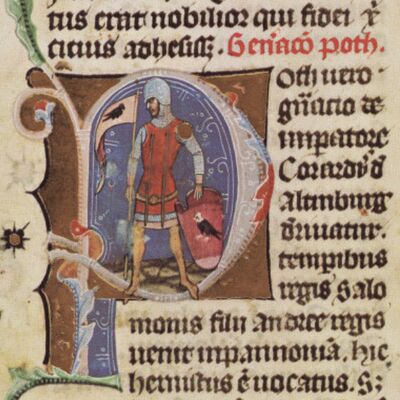 tus erat nobilior qui fidei x̄
citius adhesisꝫ. Gen̄acō poth.
Poth uero
gn̄acio de
impatore
Corardi d̄
altinburg
d̄riuatur.
tempibus
regis salo
monis filii andree regis
uenit inpannoniā. hic
hernistus ē uocatus. Sꝫ